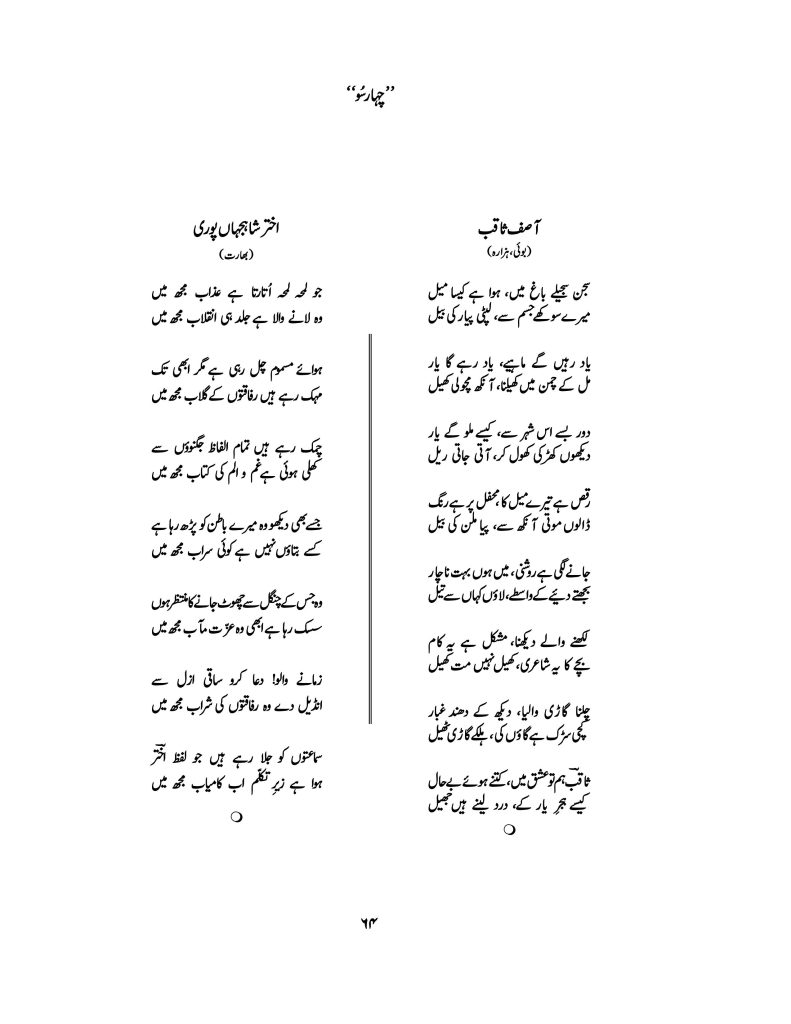 ’’چہارسُو‘‘
آصف ثاقب
(بوئی، ہزارہ)
سجن سجیلے باغ میں، ہوا ہے کیسا میل
میرے سوکھے جسم سے، لپٹی پیار کی بیل
یاد رہیں گے ماہیے، یاد رہے گا یار
مل کے چمن میں کھیلنا، آنکھ مچولی کھیل
دور بسے اس شہر سے، کیسے ملو گے یار
دیکھوں کھڑکی کھول کر، آتی جاتی ریل
رقص ہے تیرے میل کا، محفل پر ہے رنگ
ڈالوں موتی آنکھ سے، پیا ملن کی بیل
جانے لگی ہے روشنی، میں ہوں بہت ناچار
بجھتے دیئے کے واسطے، لاؤں کہاں سے تیل
لکھنے والے دیکھنا، مشکل ہے یہ کام
بچے کا یہ شاعری، کھیل نہیں مت کھیل
چلنا گاڑی والیا، دیکھ کے دھند غبار
کچی سڑک ہے گاؤں کی، ہلکے گاڑی ٹھیل
ثاقبؔ ہم تو عشق میں، کتنے ہوئے بے حال
کیسے ہجرِ یار کے، درد لیئے ہیں جھیل
اختر شاہجہاں پوری
(بھارت)
جو لمحہ لمحہ اُتارتا ہے عذاب مجھ میں
وہ لانے والا ہے جلد ہی انقلاب مجھ میں
ہوائے مسموم چل رہی ہے مگر ابھی تک
مہک رہے ہیں رفاقتوں کے گلاب مجھ میں
چمک رہے ہیں تمام الفاظ جگنوؤں سے
کُھلی ہوئی ہے غم و الم کی کتاب مجھ میں
جسے بھی دیکھو وہ میرے باطن کو پڑھ رہا ہے
کسے بتاؤں نہیں ہے کوئی سراب مجھ میں
وہ جس کے چنگل سے چھوٹ جانے کا منتظر ہوں
سسک رہا ہے ابھی وہ عزّت مآب مجھ میں
زمانے والو! دعا کرو ساقی ازل سے
انڈیل دے وہ رفاقتوں کی شراب مجھ میں
سماعتوں کو جلا رہے ہیں جو لفظ اخترؔ
ہوا ہے زیرِ تکلّم اب کامیاب مجھ میں
۶۴